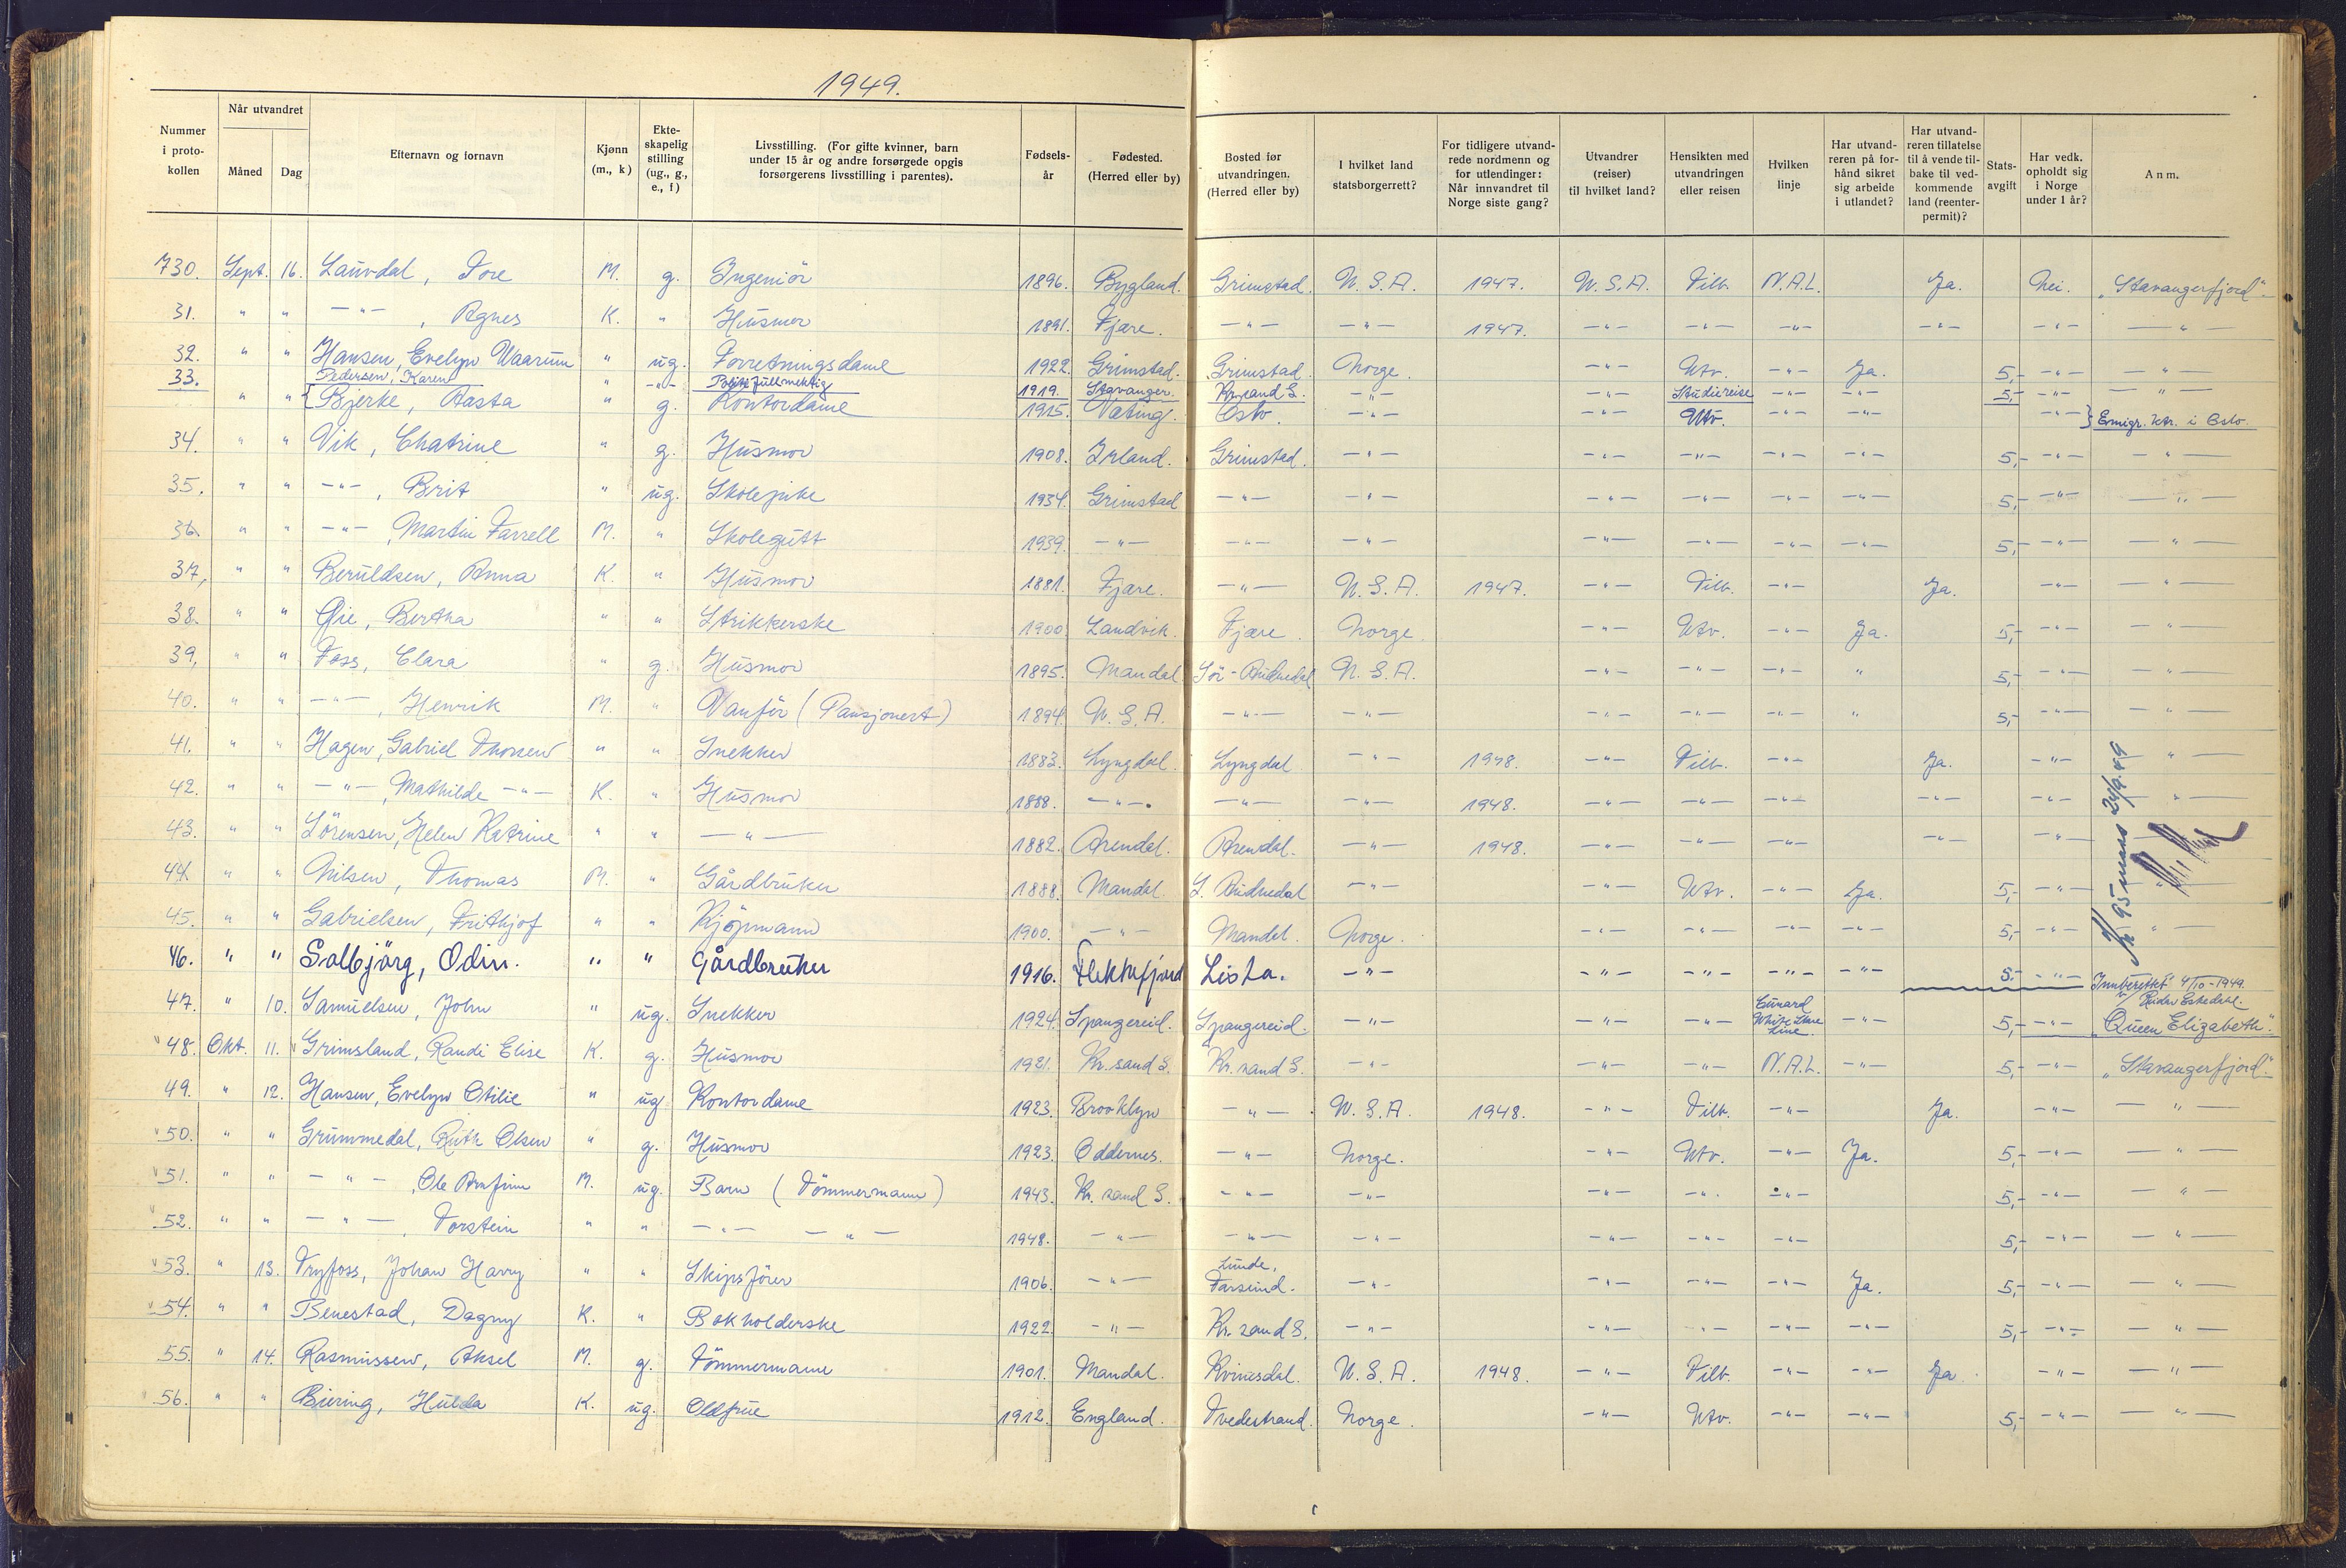 1949.
Nummer i proto-kollen | Når utvandret Måned | Dag | Efternavn og fornavn | Kjønn (m., k) | Ekte-skapelig stilling (ug., g., e., f) | Livsstilling. (For gifte kvinner, barn under 15 år og andre forsørgede opgis forsørgerens livsstilling i parentes). | Fødsels-år | Fødested. (Herred eller by) | Bosted før utvandringen. (Herred eller by) | I hvilket land statsborgerrett? | For tidligere utvand-rede nordmenn og for utlendinger: Når innvandret til Norge siste gang? | Utvandrer (reiser) til hvilket land? | Hensikten med utvandringen eller reisen | Hvilken linje | Har utvand-reren på for-hånd sikret sig arbeide i utlandet? | Har utvand-reren tillatelse til å vende til-bake til ved-kommende land (reenter-permit)? | Stats-avgift | Har vedk. opholdt sig i Norge under 1 år? | Anm.
730. Sept. 16. Lauvdal, Tore M. g. Ingeniör 1896. Bygland. Grimstad. U.S.A. 1947. U.S.A. Tilb. N.A.L. Ja. Nei. "Stavangerfjord".
31. " " —"— , Agnes K. " Husmor 1891. Fjære. —"— —"— 1947. —"— —"— —"— —"— —"— —"—
32. " " Hansen, Evelyn Waarum " ug. Forretningsdame 1922. Grimstad. Grimstad. Norge. —"— Utv. —"— Ja. 5,- —"— —"—
33. Pedersen, Karen " —"— Politifullmektig 1919. Stavanger. Kr.sand S. —"— —"— Studiereise —"— —"— 5,- —"— —"—
" " Bjerke, Aasta " g. Kontordame 1915. Oslo. —"— —"— Utv. —"— —"— —"— Emigr. ktr. i Oslo.
34. " " Vik, Chatrine " g. Husmor 1908. Irland. Grimstad. —"— —"— —"— —"— —"— 5,- —"— —"—
35. " " —"— , Brit " ug. Skolepike 1934. Grimstad —"— —"— —"— —"— —"— —"— 5,- —"— —"—
36. " " —"— , Martin Farrell M. " Skolegutt 1939. —"— —"— —"— —"— —"— —"— —"— 5,- —"— —"—
37, " " Beruldsen, Anna K. " Husmor 1881. Fjære. —"— U.S.A. 1947. —"— Tilb. —"— Ja. —"— —"—
38. " " Øie, Bertha " " Strikkerske 1900 Landvik. Fjære. Norge. —"— Utv. —"— Ja. 5,- —"— —"—
39, " " Foss, Clara " g. Husmor 1895. Mandal Sör-Audnedal U.S.A. —"— —"— —"— " 5,- —"— —"—
40. " " —"— , Henrik M. " Vanför (Pansjonert) 1894. U.S.A. —"— —"— —"— —"— —"— " 5,- —"— —"—
41. " " Hagen, Gabriel Thorsen " " Snekker 1883. Lyngdal. Lyngdal —"— 1948. —"— Tilb. —"— Ja. —"— —"—
42. " " —"— , Mathilde —"— K. " Husmor 1888. —"— —"— —"— 1948. —"— —"— —"— —"— —"— —"—
43. " " Sörensen, Helen Katrine " " —"— 1882. Arendal. Arendal. —"— 1948. —"— —"— —"— —"— —"—
44. " " Nilsen, Thomas M. " Gårdbruker 1888. Mandal. S. Audnedal —"— —"— Utv. —"— Ja. 5,- —"— "
45. " " Gabrielsen, Frithjof " " Kjöpmann 1900. —"— Mandal. Norge. —"— —"— —"— —"— 5,- —"— "—
46. " " Solbjörg, Odin. " " Gårdbruker 1916. Flekkefjord Lista. —"— —"— —"— —"— —"— 5.- —"— Innberettet 4/10-1949.
47. " 10. Samuelsen, John " ug. Snekker 1924. Spangereid. Spangereid. —"— —"— —"— Cunard White Star Line. —"— 5,- —"— "Queen Elizabeth".
48. Okt. 11. Grimsland, Randi Elise K. g. Husmor 1921. Kr.sand S. Kr.sand S. —"— —"— —"— N.A.L. —"— 5,- —"— "Stavangerfjord".
49. " 12. Hansen, Evelyn Otilie " ug. Kontordame 1923. Brooklyn —"— U.S.A. 1948. —"— Tilb. —"— Ja. —"— —"—
50. " " Grummedal, Ruth Olsen " g. Husmor 1923. Oddernes. —"— Norge. —"— Utv. —"— Ja. 5,- —"— —"—
51. " " —"— , Ole Arnfinn M. ug. Barn (Tömmermann) 1943. Kr.sand S. —"— —"— —"— —"— —"— 5,- —"— —"—
52. " " —"— , Torstein " " —"— —"— 1948. —"— —"— —"— —"— —"— —"— 5,- —"— —"—
53. " 13. Tryfoss, Johan Harry " " Skipsförer 1906. —"— Lunde, Farsund. —"— —"— —"— —"— Ja. 5,- —"— —"—
54. " " Benestad, Dagny K. " Bokholderske 1922. —"— Kr.sand S. —"— —"— —"— —"— —"— 5,- —"— —"—
55. " 14. Rasmussen, Aksel M. g. Tömmermann 1901. Mandal. Kvinesdal. U.S.A. 1948. —"— Tilb. —"— —"— Ja —"— —"—
56. " " Biering, Hulda K. ug. Oldfrue 1912. England. Tvedestrand. Norge. —"— Utv. —"— —"— 5,- —"— —"—
Kr 95 24/9.49